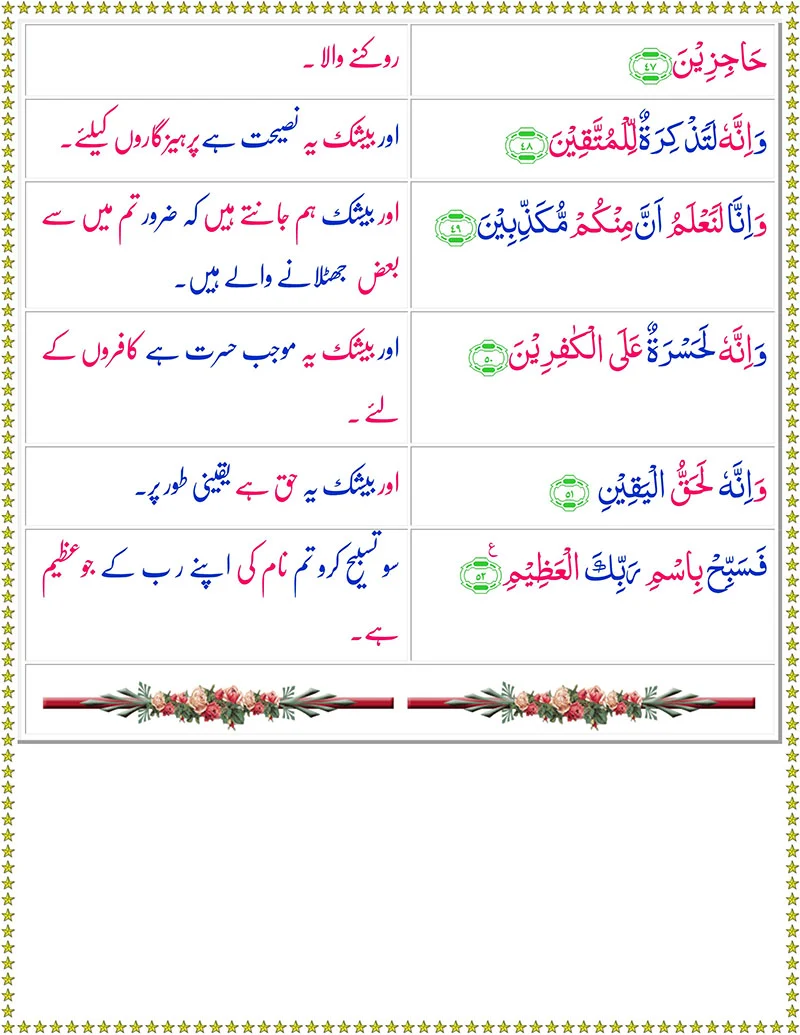 حَاجِزِیْنَ ﴿۴۷﴾
روکنے والا ۔
وَاِنَّهٗ لَتَذْكِرَةٌ لِّلْمُتَّقِیْنَ ﴿۴۸﴾
اور بیشک یہ نصیحت ہے پرہیز گاروں کیلئے۔
وَاِنَّا لَنَعْلَمُ اَنَّ مِنْكُمْ مُّكَذِّبِیْنَ ﴿۴۹﴾
اور بیشک ہم جانتے ہیں کہ ضرور تم میں سے
بعض جھٹلانے والے ہیں۔
وَاِنَّهٗ لَحَسْرَةٌ عَلَى الْكٰفِرِیْنَ ﴿۵۰﴾
اور بیشک یہ موجب حسرت ہے کافروں کے
لئے ۔
وَاِنَّهٗ لَحَقُّ الْیَقِیْنِ ﴿۵۱﴾
اور بیشک یہ حق ہے یقینی طور پر۔
فَسَبِّحْ بِاسْمِ رَبِّكَ الْعَظِیْمِ ﴿۵۲﴾ ع
سو تسبیح کرو تم نام کی اپنے رب کے جو عظیم
ہے۔